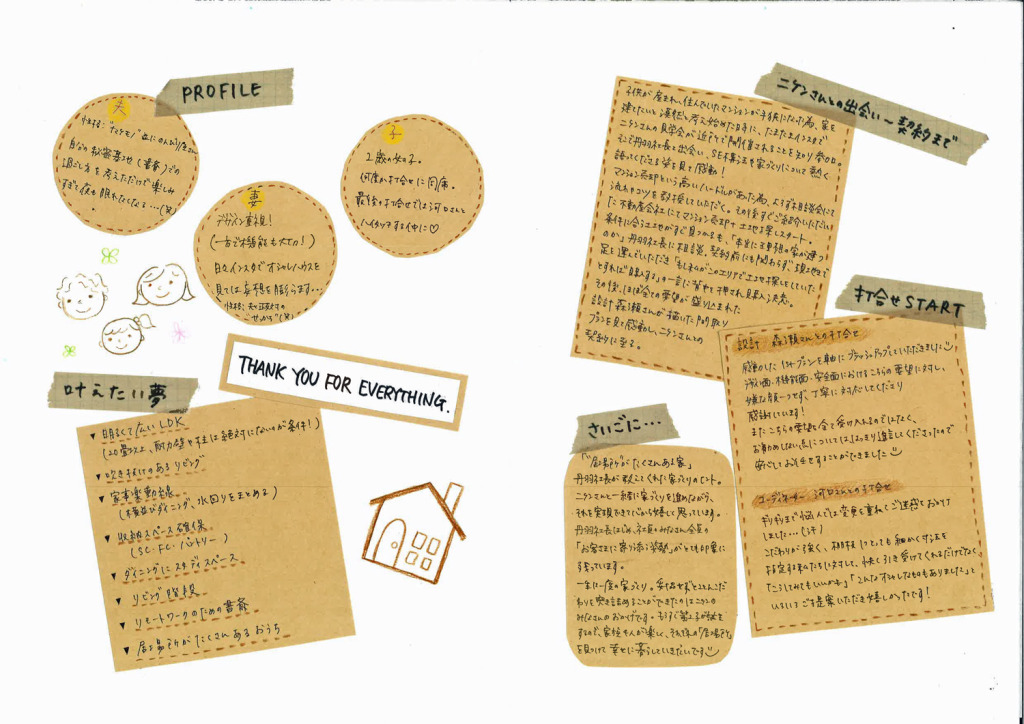 PROFILE
夫
性格:ナマケモノ並にのんびり屋さん
自分の秘密基地(書斎)での
過ごし方を考えただけで楽しみ
すぎて夜も眠れなくなる…(笑)
妻
デザイン重視!
(一方で機能も大切!)
日々インスタでオシャレハウスを
見ては妄想を膨らます…
性格:夫と正反対の
"せっかち"(笑)
子
2歳の女の子。
何度か打合せに同席。
最後の打合せでは河口さんと
ハイタッチする仲に♡
THANK YOU FOR EVERYTHING.
叶えたい夢
▼明るくて広いLDK
(20畳以上、耐力壁や柱は絶対にないのが条件!)
▼吹き抜けのあるリビング
▼家事楽動線
(横並びダイニング、水回りをまとめる)
▼収納スペース確保
(SC・FC・パントリー)
▼ダイニングにスタディスペース
▼リビング階段
▼リモートワークのための書斎
▼居場所がたくさんあるおうち
ニケンさんとの出会い〜契約まで
子供が産まれ、住んでいたマンションが手狭になった為、家を
建てたいと漠然と考え始めた時に、たまたまインスタで
ニケンさんの見学会が近所で開催されることを知り参加。
そこで丹羽社長と出会い、SE構法や家づくりについて熱く
語ってくださる姿を見て感動!
マンション売却という高いハードルがあった為、まず相談会にて
流れやコツを教授していただく。その後すぐご紹介いただい
た不動産会社にてマンション売却+土地探しスタート。
条件に合う土地がすぐ見つかるも、「本当に理想の家が建つ
のか」丹羽社長に相談。契約前にも関わらず、現地まで
足を運んでいただき「もし私がこのエリアで土地探しをしていた
とすれば購入する」の一言に背中を押され、購入を決意。
その後、ほぼ全ての要望が盛り込まれた
設計 森瀬さんが描いた間取り
プランを見て感動し、ニケンさんとの
契約に至る。
打合せSTART
設計 森瀬さんとの打合せ
感動した1stプランを軸にブラッシュアップしていただきました
意匠面・機能面・安全面におけるこちらの要望に対し、
嫌な顔一つせず、丁寧に対応してくださり
感謝しています!
またこちらの要望を全て受け入れるのではなく、
お勧めしない点についてははっきり進言してくださったので
安心してお任せすることができました
コーディネーター 河口さんとの打合せ
ギリギリまで悩んでは変更を重ねてご迷惑をおかけ
しました…(汗)
こだわりが強く、棚板1つとっても細かく寸法を
指定する私たちに対して、快く引き受けてくれるだけでなく、
「こうしてみてもいいかも」「こんなオシャレなものもありました」と
いろいろご提案いただき嬉しかったです!
さいごに…
「居場所がたくさんある家」
丹羽社長が教えてくれた家づくりのヒント。
ニケンさんと一緒に家づくりを進めながら、
それを実現できて心から嬉しく思っています。
丹羽社長はじめ、社員のみなさん全員の
「お客さまに寄り添う姿勢」がとても印象に
残っています。
一生に一度の家づくり。妥協せずとことんこだ
わりを突き詰めることができたのはニケンの
みなさんのおかげです。もうすぐ第二子が誕生
するので、家族4人が楽しく、それぞれの「居場所」
を見つけて幸せに暮らしていきたいです